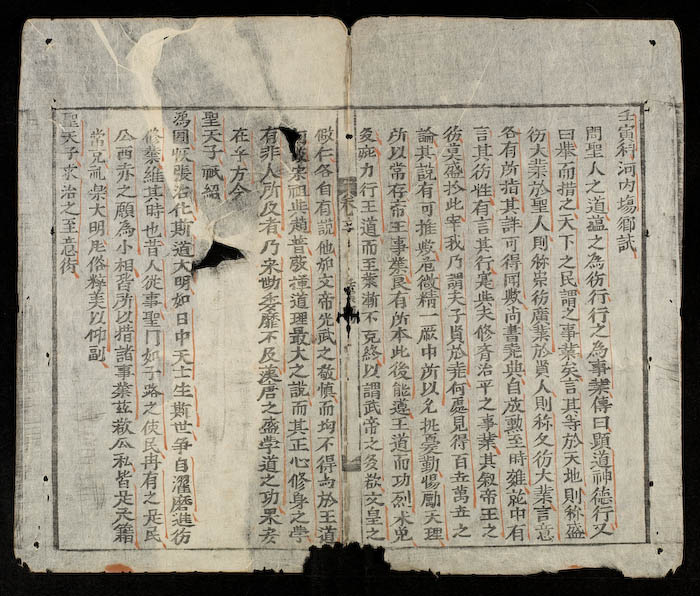 壬寅科河内塲鄉試
問聖人之道蘊之為德行行之為事業傳曰顯道神德行又
曰舉而措之天下之民謂之事業矣言其等於天地則称盛
德大業於聖人則称崇德廣業於賢人則称久德大業言意
各有所指其詳可得聞歟尚書堯典自放勳至時雍訖中有
言其德性有言其行寔與夫修齊治平之事業其叙帝王之
德莫盛於此宰我乃謂夫子賢於堯何處見得百世萬世之
論其說有可推歟危微精一厥中所以允執憂勤惕勵天理
所以常存帝王事業良有所本此後能遵王道而功烈未免
力行王道而王業漸不克終以謂武帝之多欲文皇之
做仁各自有說他如文帝光武之敬慎而均不得為於王道
宋祖與趙普發撞道理最大之說而其正心修身之學
有非人所及者乃宋勢委靡不及漢唐之盛學道之功果安
在乎方今
聖天子祗紹
為國恢張治化斯道大明如日中天士生斯世爭自濯磨進德
修業維其時也昔人從事聖門如子路之使民冉有之足民
公西赤之願為小相者所以措諸事業茲欲公私皆足文籍
常充祀樂大明风俗粹美以仰副
聖天子求治之至意術